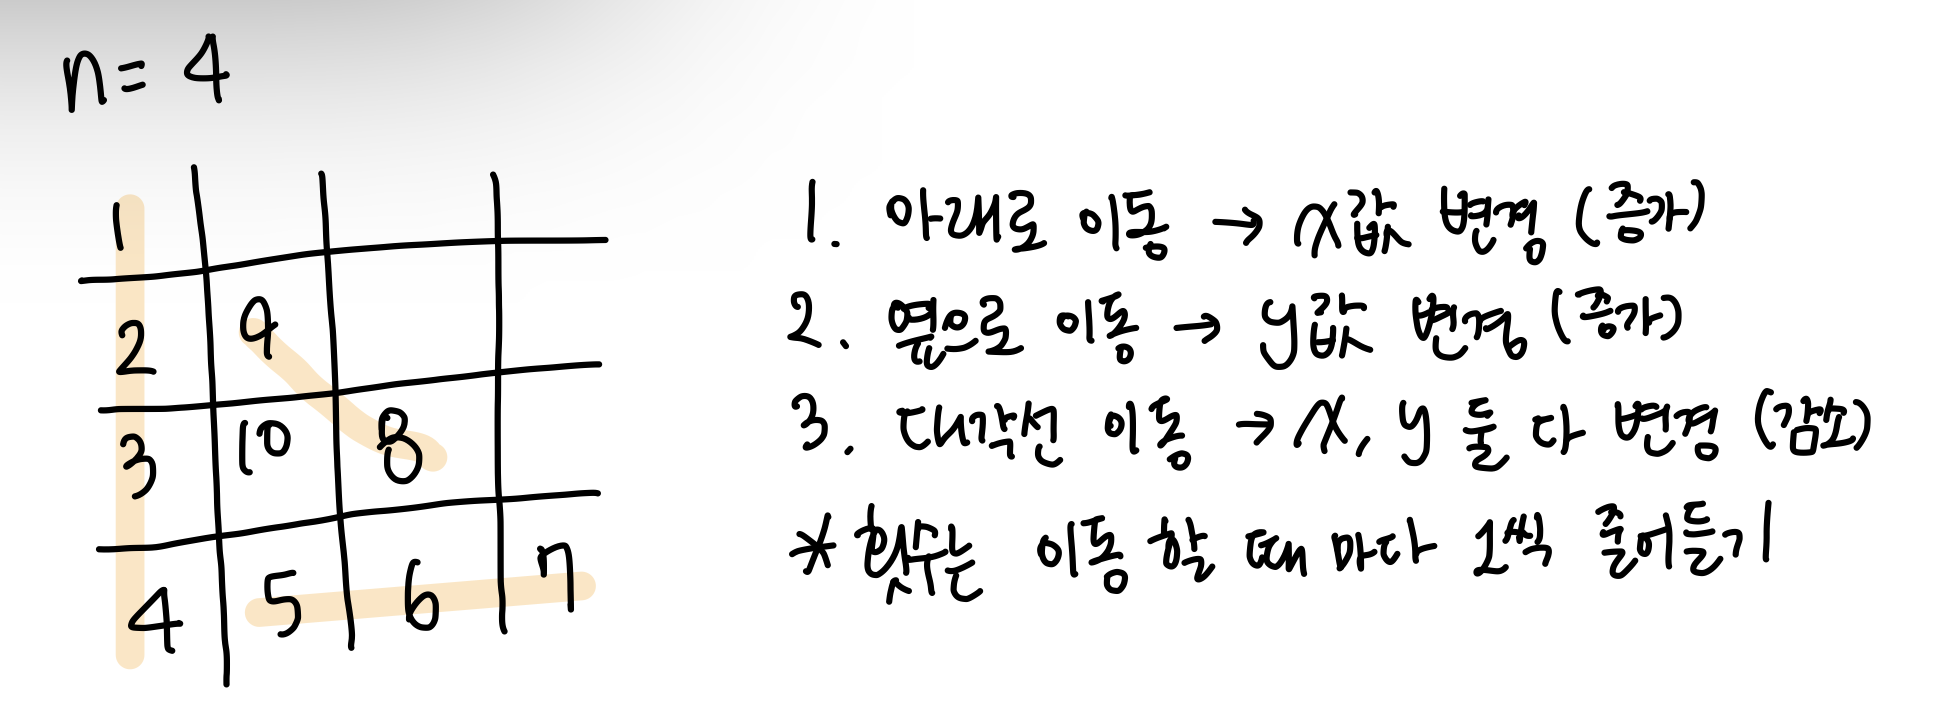 n = 4
1
2 9
3 10 8
4 5 6 7
1. 아래로 이동 → x값 변경 (증가)
2. 옆으로 이동 → y값 변경 (증가)
3. 대각선 이동 → x, y 둘 다 변경 (감소)
* 횟수는 이동 할 때 마다 1씩 줄어들기